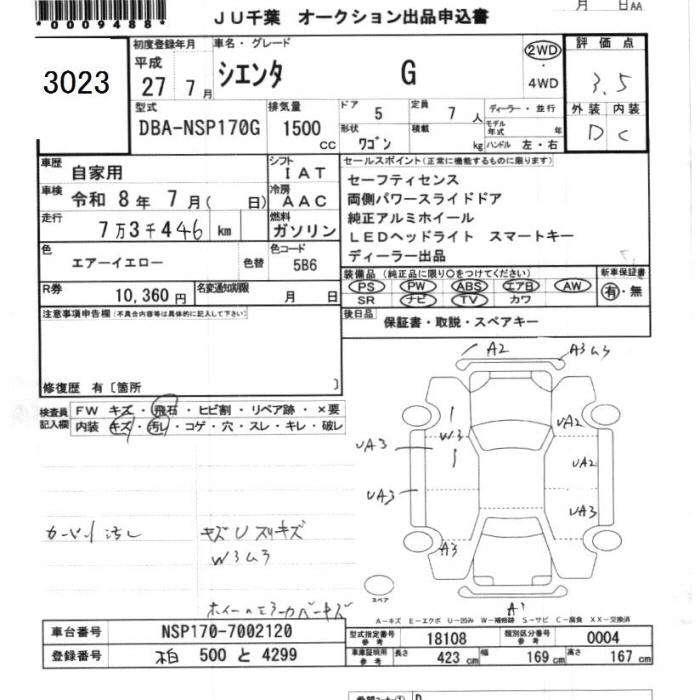 *0009488*
ＪＵ千葉 オークション出品申込書
月 日AA
3023
初度登録年月
平成
27 7月
車名・グレード
シエンタ G
2WD
・
4WD
評価点
3.5
外装 内装
D C
型式
DBA-NSP170G
排気量
1500 cc
ドア 5
定員 7 人
ディーラー・並行
形状 ワゴン
積載 kg
モデル年式 年
ハンドル 左・右
車歴
自家用
シフト
IAT
車検
令和 8年 7月( 日)
冷房
AAC
走行
7万3千446 km
燃料
ガソリン
色
エアーイエロー
色替
色コード
5B6
R券
10,360円
名変通知期限
月 日
セールスポイント(正常に機能するものに限ります)
セーフティセンス
両側パワースライドドア
純正アルミホイール
ＬＥＤヘッドライト スマートキー
ディーラー出品
装備品(純正品に限り〇をつけてください)
PS PW ABS エアB AW
SR ナビ TV カワ
新車保証書
有・無
後日品
保証書・取説・スペアキー
注意事項申告欄(不具合内容等は具体的に記入して下さい)
修復歴 有〔箇所 〕
検査員記入欄
FW キズ・飛石・ヒビ割・リペア跡・×要
内装 キズ・汚レ・コゲ・穴・スレ・キレ・破レ
A2
A3
W3
UA3
UA3
UA2
UA2
UA3
A3
A1
キズ
スペア
A-キズ E-エクボ U-凹み W-補修跡 S-サビ C-腐食 XX-交換済
車台番号
NSP170-7002120
登録番号
柏 500 と 4299
型式指定番号 参考
18108
類別区分番号 参考
0004
車庫証明用 参考
長さ 423 cm
幅 169 cm
高さ 167 cm